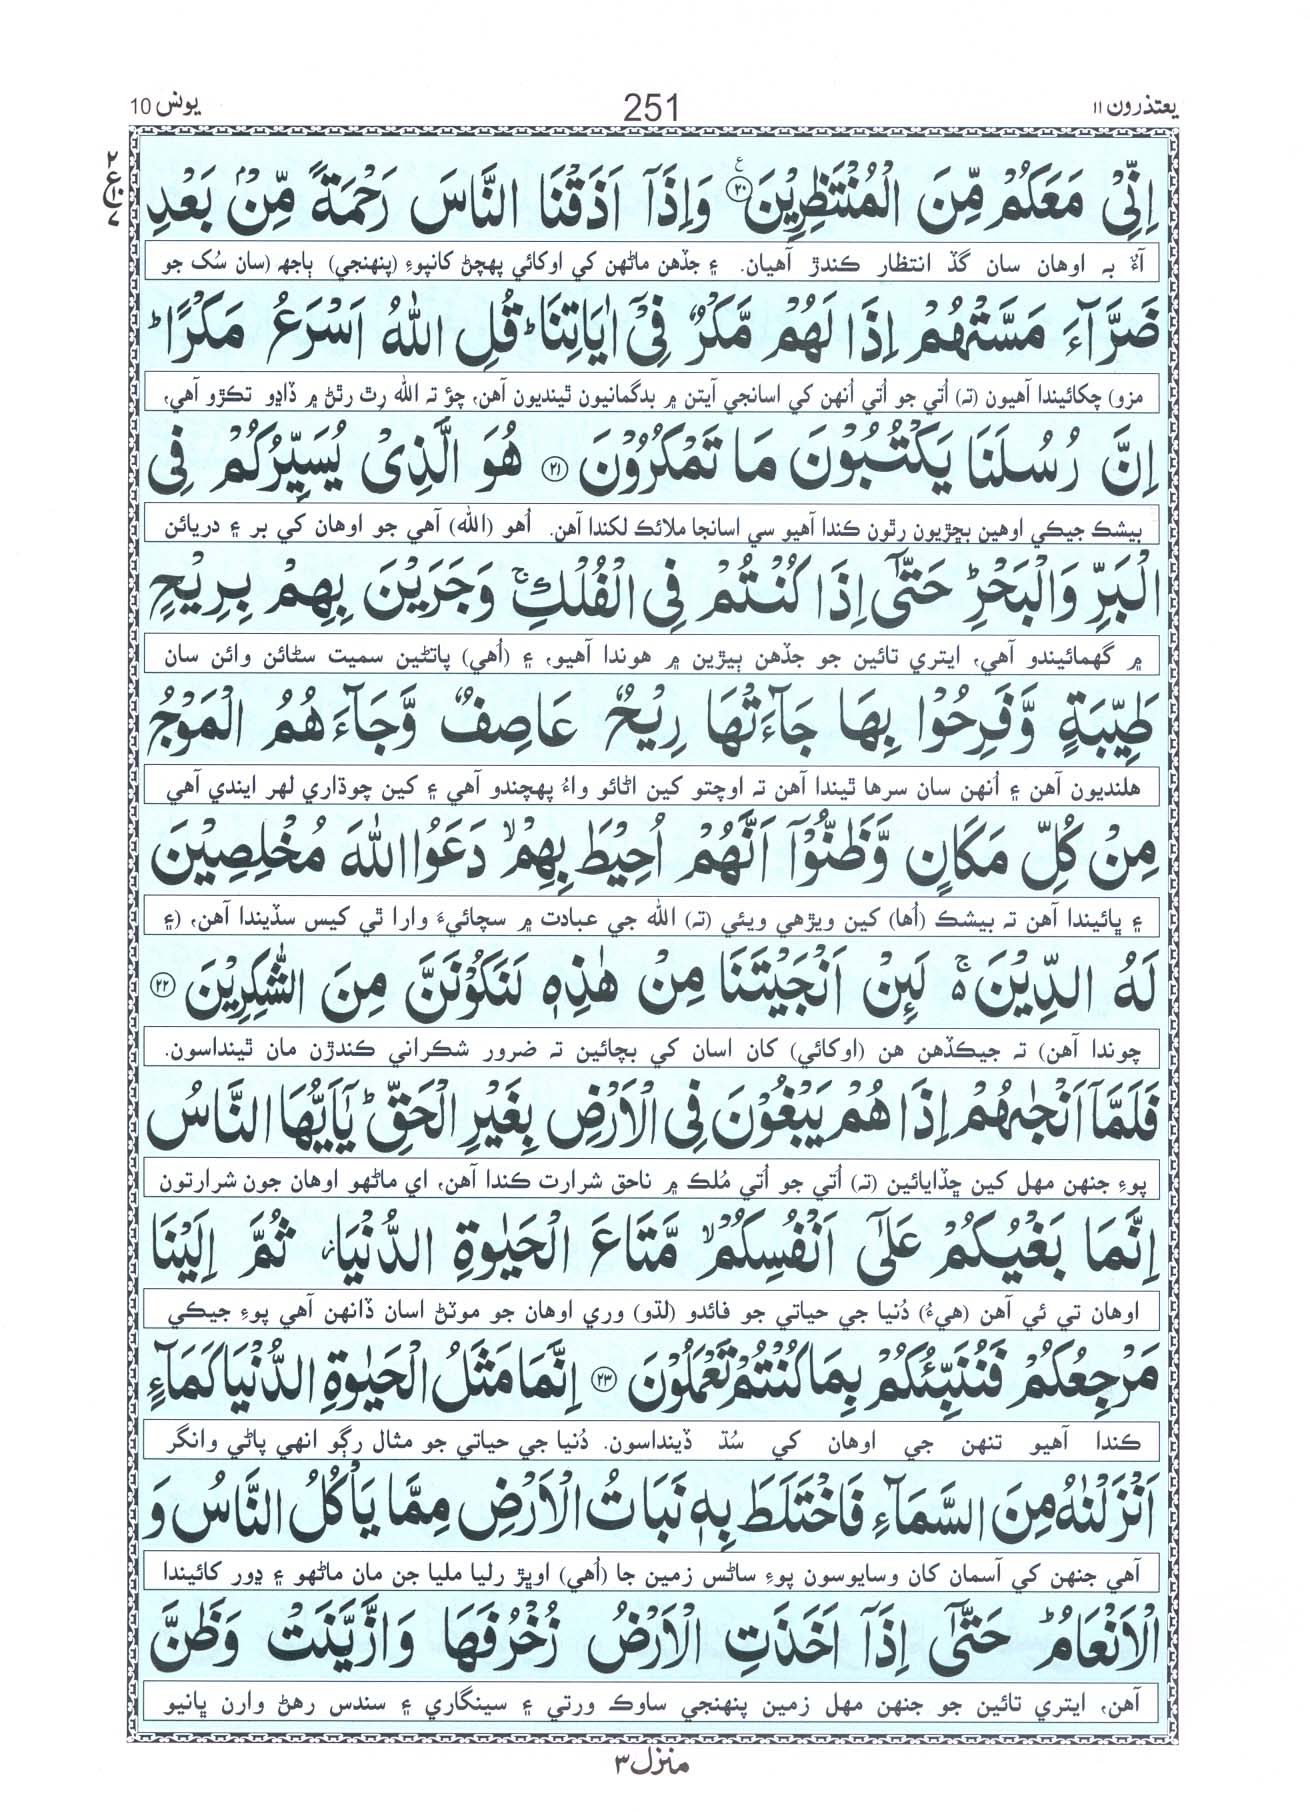 يعتذرون ۱۱
251
يونس 10
اِنِّیْ مَعَكُمْ مِّنَ الْمُنْتَظِرِیْنَ ۟۠ ۲۰ وَاِذَاۤ اَذَقْنَا النَّاسَ رَحْمَةً مِّنْۢ بَعْدِ
آءٌ به اوهان سان گڏ انتظار ڪندڙ آهيان. ۽ جڏهن ماڻهن کي اوکائي پهچڻ کانپوءِ (پنهنجي) ٻاجهه (سان سُک جو
ضَرَّآءَ مَسَّتْهُمْ اِذَا لَهُمْ مَّكْرٌ فِیْۤ اٰیَاتِنَا ؕ قُلِ اللّٰهُ اَسْرَعُ مَكْرًا ؕ
مزو) چکائيندا آهيون (ته) اُتي جو اُتي اُنهن کي اسانجي آيتن ۾ بدگمانيون ٿينديون آهن، چؤ ته الله رِٿ رٿڻ ۾ ڏاڍو تڪڙو آهي،
اِنَّ رُسُلَنَا یَكْتُبُوْنَ مَا تَمْكُرُوْنَ ۲۱ هُوَ الَّذِیْ یُسَیِّرُكُمْ فِی
بيشڪ جيڪي اوهين بڇڙيون رٿون ڪندا آهيو سي اسانجا ملائڪ لکندا آهن. اُهو (الله) آهي جو اوهان کي بر ۽ دريائن
الْبَرِّ وَالْبَحْرِ ؕ حَتّٰۤی اِذَا كُنْتُمْ فِی الْفُلْكِ ۚ وَجَرَیْنَ بِهِمْ بِرِیْحٍ
۾ گهمائيندو آهي، ايتري تائين جو جڏهن ٻيڙين ۾ هوندا آهيو، ۽ (اُهي) پاڻڻين سميت سڻائن وائن سان
طَیِّبَةٍ وَّفَرِحُوْا بِهَا جَآءَتْهَا رِیْحٌ عَاصِفٌ وَّجَآءَهُمُ الْمَوْجُ
هلنديون آهن ۽ اُنهن سان سرها ٿيندا آهن ته اوچتو کين اڻائو واءُ پهچندو آهي ۽ کين چوڌاري لهر ايندي آهي
مِنْ كُلِّ مَكَانٍ وَّظَنُّوْۤا اَنَّهُمْ اُحِیْطَ بِهِمْ ۙ دَعَوُا اللّٰهَ مُخْلِصِیْنَ
۽ ڀائيندا آهن ته بيشڪ (اُها) کين ويڙهي ويئي (ته) الله جي عبادت ۾ سچائيءَ وارا ٿي کيس سڏيندا آهن، (۽
لَهُ الدِّیْنَ ۚ۬ لَىِٕنْ اَنْجَیْتَنَا مِنْ هٰذِهٖ لَنَكُوْنَنَّ مِنَ الشّٰكِرِیْنَ ۲۲
چوندا آهن) ته جيڪڏهن هن (اوکائي) کان اسان کي بچائين ته ضرور شڪراني ڪندڙن مان ٿينداسون.
فَلَمَّاۤ اَنْجٰىهُمْ اِذَا هُمْ یَبْغُوْنَ فِی الْاَرْضِ بِغَیْرِ الْحَقِّ ؕ یٰۤاَیُّهَا النَّاسُ
پوءِ جنهن مهل کين ڇڏايائين (ته) اُتي جو اُتي مُلڪ ۾ ناحق شرارت ڪندا آهن، اي ماڻهو اوهان جون شرارتون
اِنَّمَا بَغْیُكُمْ عَلٰۤی اَنْفُسِكُمْ ۙ مَّتَاعَ الْحَیٰوةِ الدُّنْیَا ؗ ثُمَّ اِلَیْنَا
اوهان تي ئي آهن (هيءُ) دُنيا جي حياتي جو فائدو (لڏو) وري اوهان جو موٽڻ اسان ڏانهن آهي پوءِ جيڪي
مَرْجِعُكُمْ فَنُنَبِّئُكُمْ بِمَا كُنْتُمْ تَعْمَلُوْنَ ۲۳ اِنَّمَا مَثَلُ الْحَیٰوةِ الدُّنْیَا كَمَآءٍ
ڪندا آهيو تنهن جي اوهان کي سُڌ ڏينداسون. دُنيا جي حياتي جو مثال رڳو انهي پاڻي وانگر
اَنْزَلْنٰهُ مِنَ السَّمَآءِ فَاخْتَلَطَ بِهٖ نَبَاتُ الْاَرْضِ مِمَّا یَاْكُلُ النَّاسُ وَ
آهي جنهن کي آسمان کان وسايوسون پوءِ ساڻس زمين جا (اُهي) اوڀڙ رليا مليا جن مان ماڻهو ۽ ڍور کائيندا
الْاَنْعَامُ ؕ حَتّٰۤی اِذَاۤ اَخَذَتِ الْاَرْضُ زُخْرُفَهَا وَازَّیَّنَتْ وَظَنَّ
آهن، ايتري تائين جو جنهن مهل زمين پنهنجي ساوڪ ورتي ۽ سينگاري ۽ سندس رهڻ وارن ڀانيو
منزل ۳